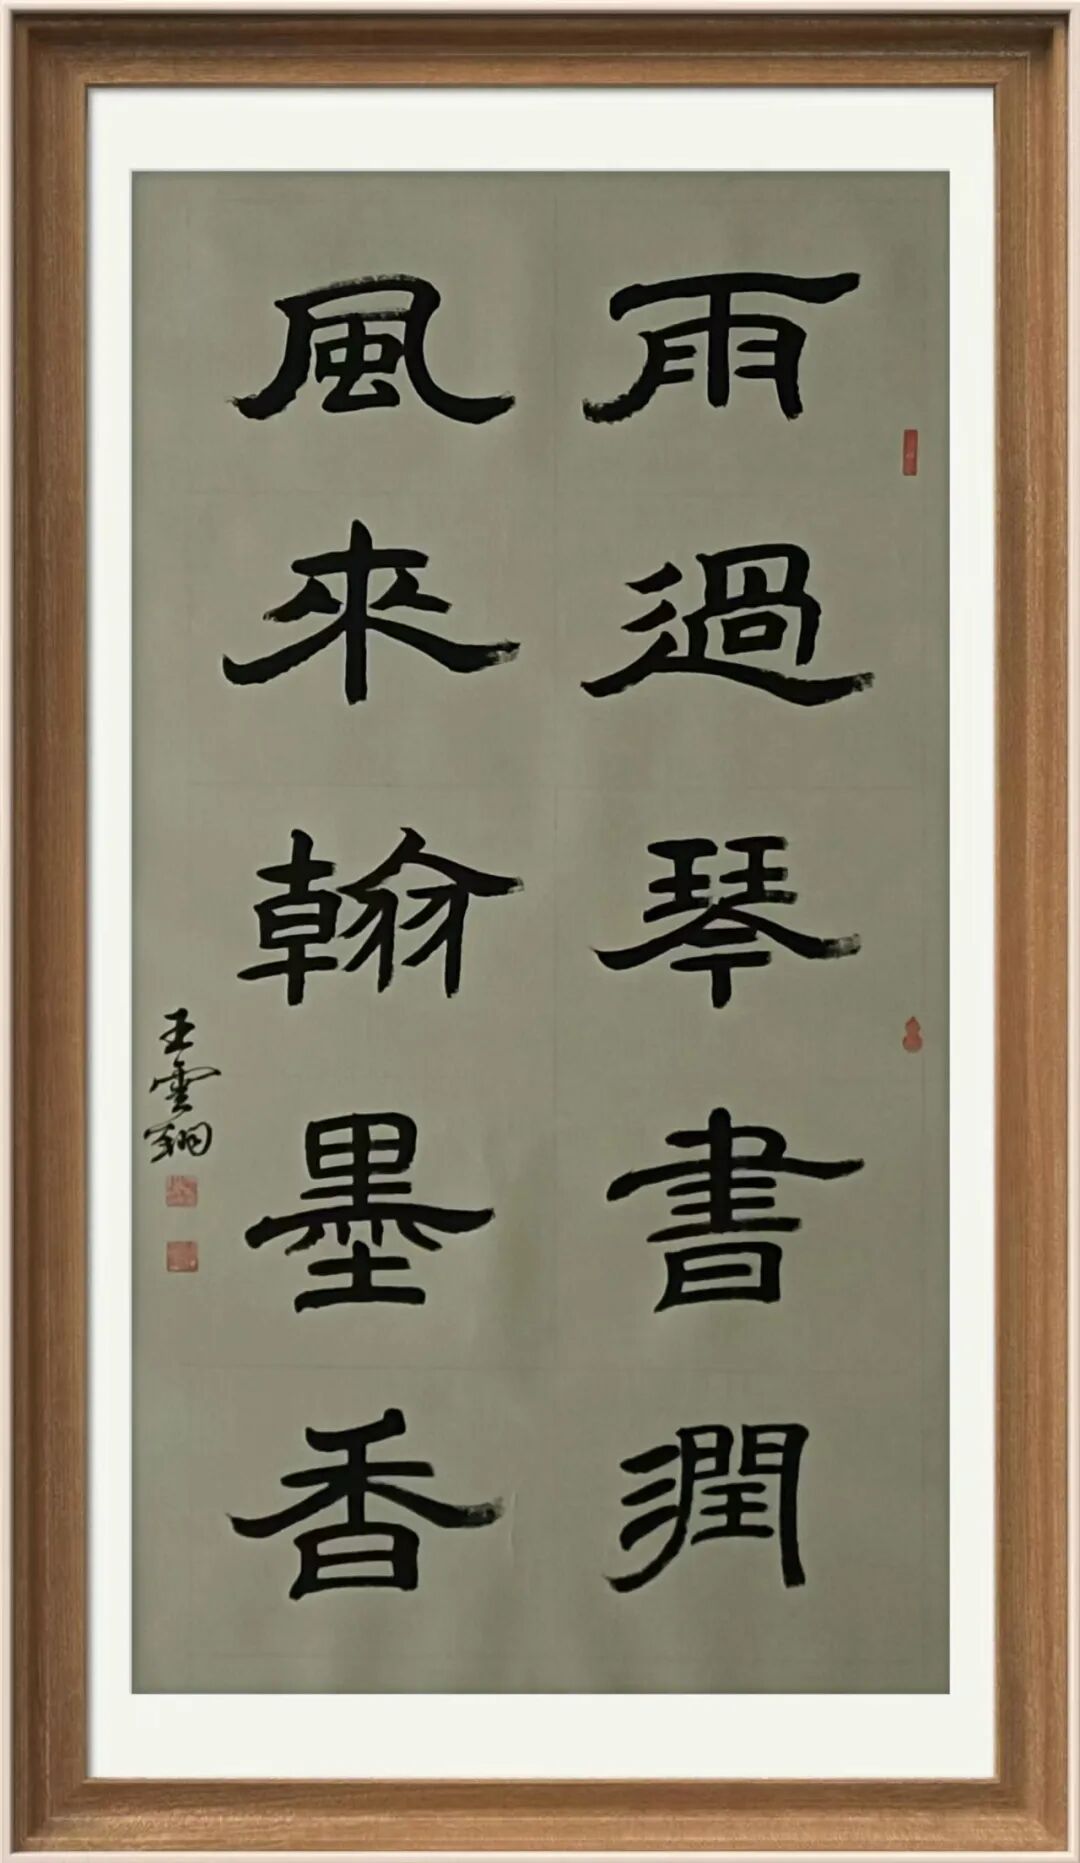 雨過琴書潤
風來翰墨香
王雲